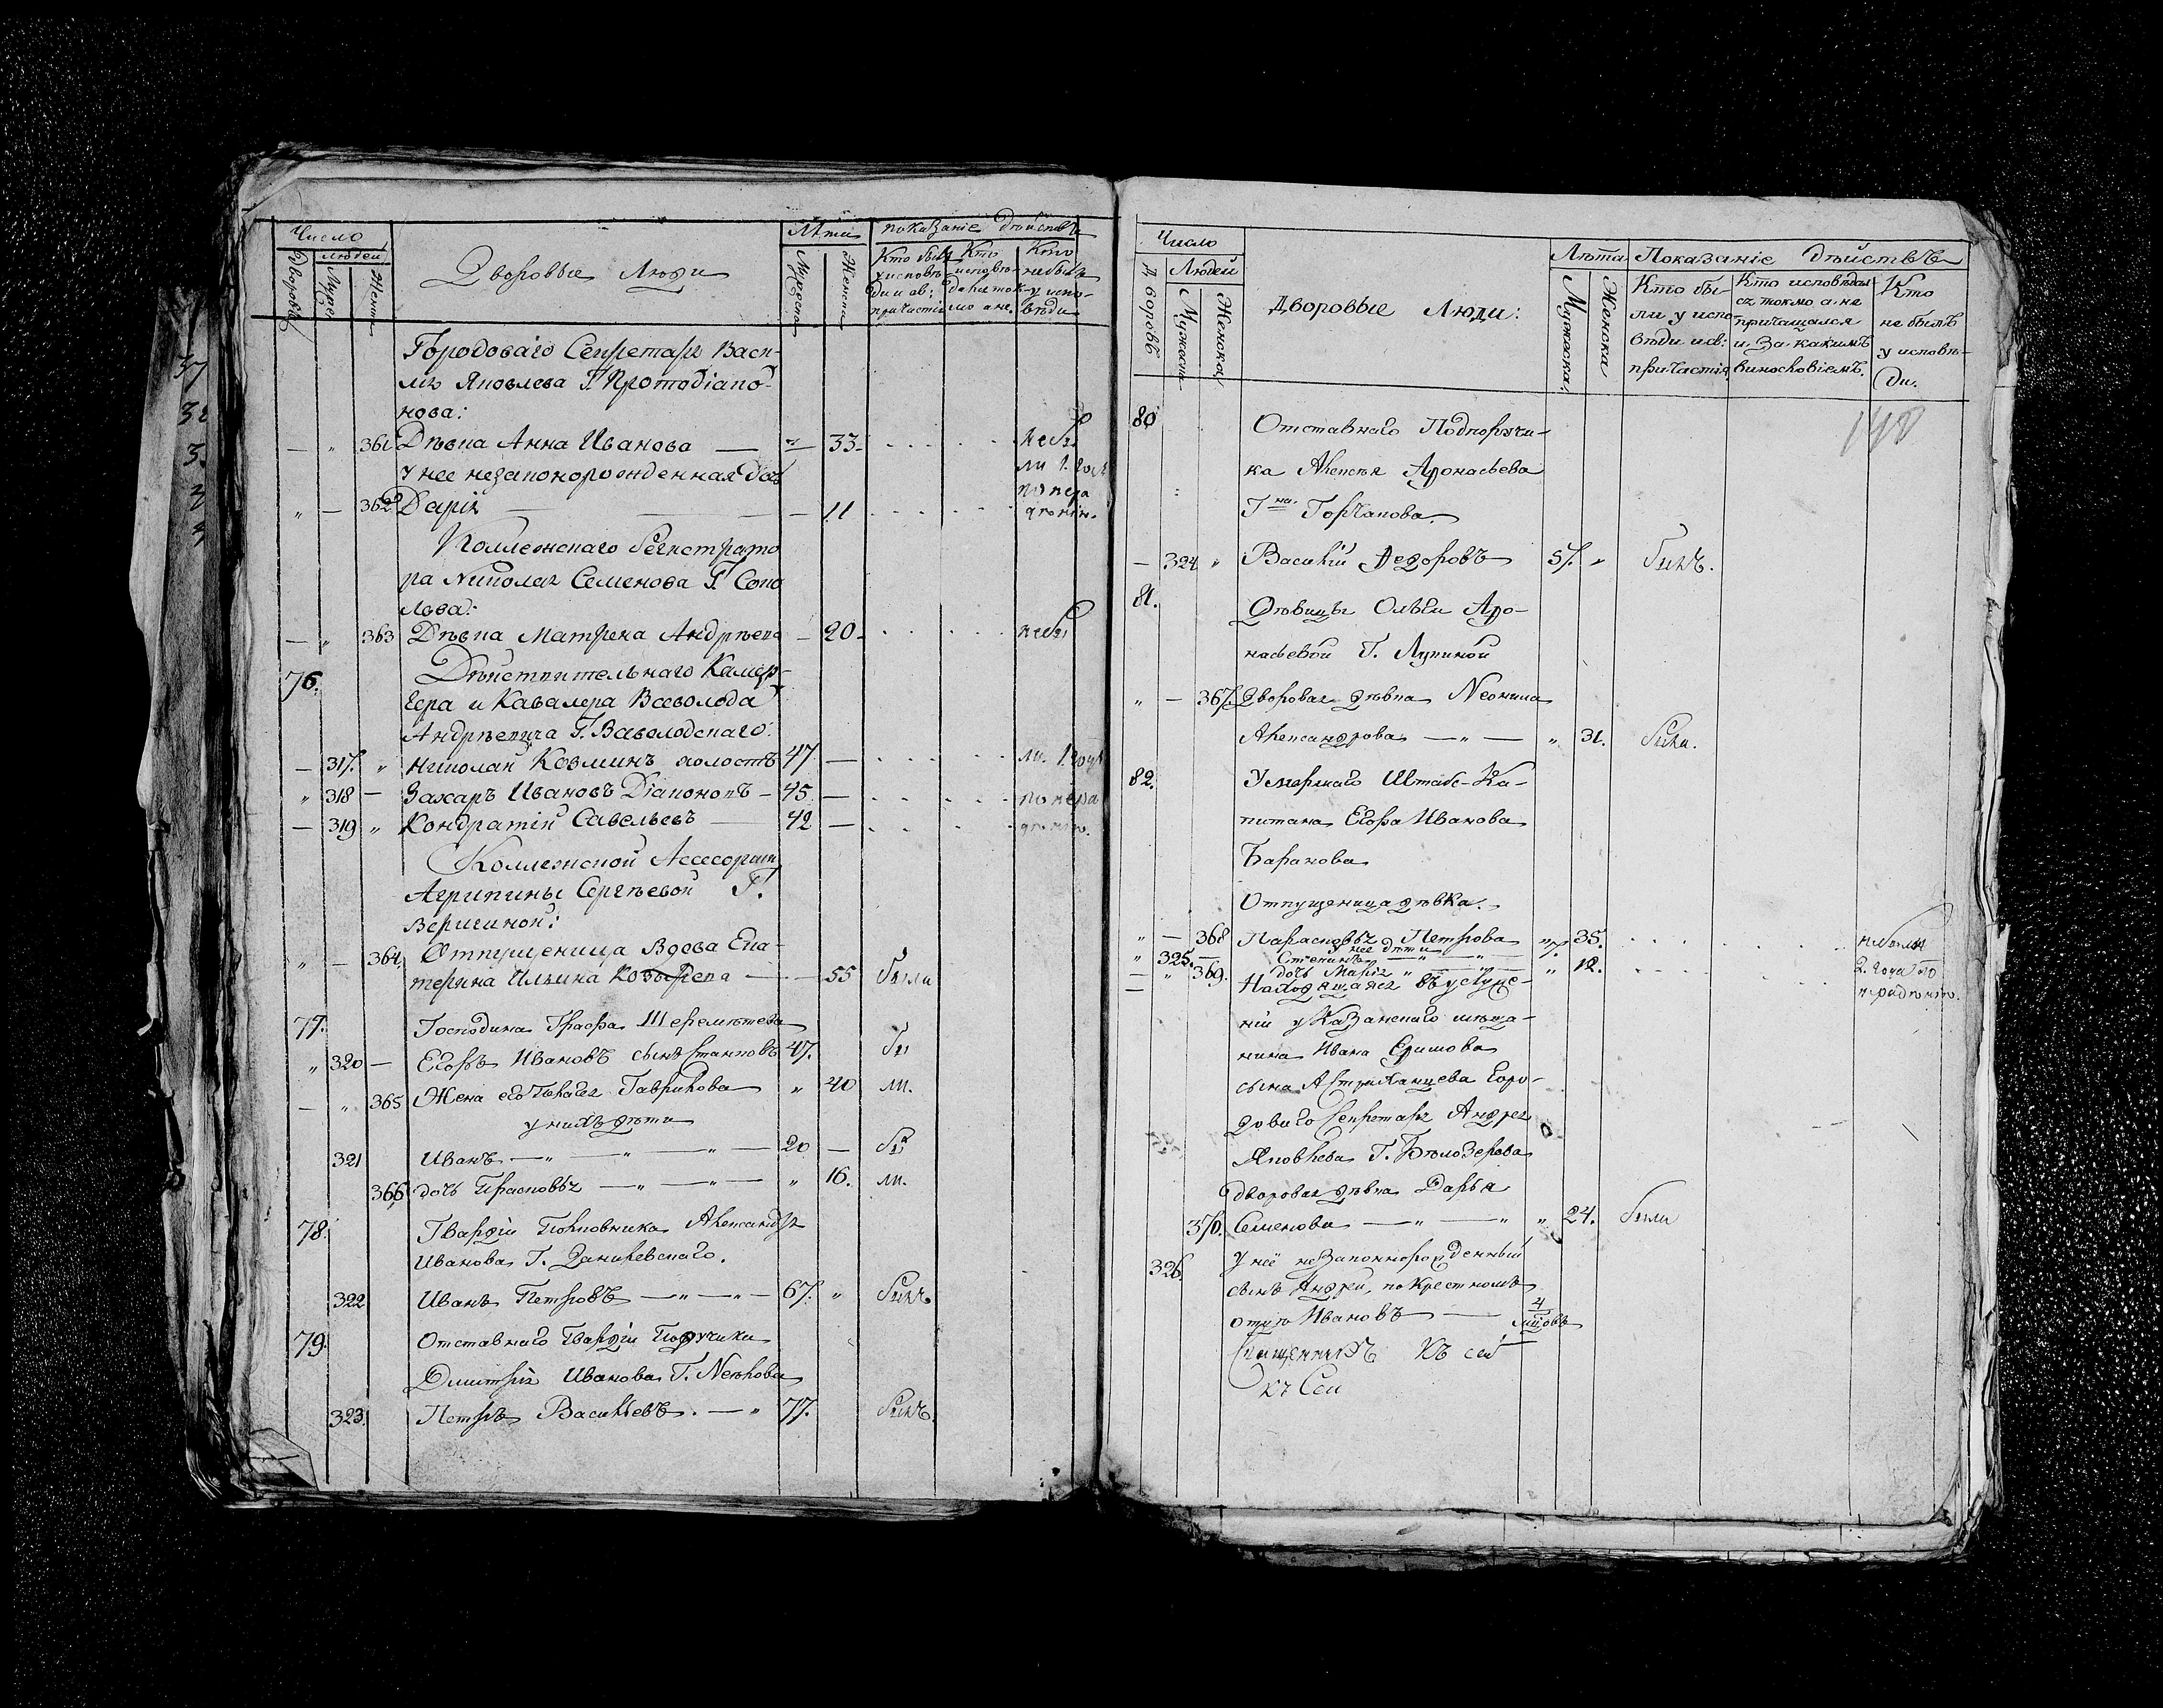 Число
Людей
Дворовъ
Мужс
Женска
Дворовые Люди
Лѣта
Мужеска
Женска
показаніе дѣйствъ
Кто былъ у исповѣди и св: причастія
Кто исповѣдался токмо а не.
Кто не былъ у исповѣди
Городоваго Секретаря Васи-
лія Яковлева Г. Протодіако-
нова:
— " 361 Дѣвка Анна Иванова — " — 33 небы
У нее незаконорожденная дочь ли 1. годъ
" — 362 Дарія — 11 по нера
дѣнію.
Коллежскаго Регистрато
ра Николая Семенова Г. Соко
лова:
— " 363 Дѣвка Матрена Андрѣева — 20 небы
76. Дѣйствительнаго Камер-
гера и Кавалера Всеволода
Андрѣевича Г. Всеволодскаго:
— 317. " Николай Козминъ холостъ 47 — ли. 1 годъ
" 318 — Захаръ Ивановъ Діаконовъ — 45 — по нера
— 319 " Кондратій Савельевъ — 42 — дѣнію.
Коллежской Асессорши
Агрипины Сергѣевой Г.
Веригиной:
" — 364. Отпущеница Вдова Ека-
терина Ильина Козырева — — 55 были
77. Господина Графа Шереметева
" 320 — Егоръ Ивановъ сынъ 47. бы
— " 365 Жена его Гаврилова " 40 ли.
у нихъ дѣти
321 Иванъ — " — " — " — 20 — бы
366 дочь Прасковья — " — " — " 16. ли.
78. Гвардіи Полковника Александра
Иванова Г. Данилевскаго.
322 Иванъ Петровъ — " — " — 67. " былъ
79. Отставнаго Гвардіи Поручика
Дмитрія Иванова Г.
323. Петръ Васильевъ. — " 77. былъ.
Число
Людей
Дворовъ
Мужеска
Женска
Дворовые Люди:
Лѣта
Мужеска
Женска
Показаніе дѣйствъ
Кто бы-
ли у испо
вѣди и св:
причастія
Кто исповѣдал
ся токмо а не
причащался
и за какимъ
винословіемъ.
Кто
не былъ
у исповѣ-
ди.
80 Отставнаго Подпоручи-
ка Алексѣя Афонасьева
Гна. Горчакова.
— 324 " Василій Федоровъ 57. " былъ.
81. Дѣвицы Ольги Афо-
насьевой Г. Лукиной
" — 367. Дворовая дѣвка Неонила
Александрова — " — " 31. была.
82. Умершаго Штабс-Ка-
питана Егора Иванова
Баранова
Отпущеница дѣвка.
" — 368 Парасковья Петрова " 35. небыли
у нее дѣти
" 325. — Степанъ — " — " 7. 2. года по
— " 369. дочь Марія " — " 12. нерадѣнію.
— Находящаяся въ услуже-
ніи у Казанскаго мѣща-
нина Ивана Ефимова
сына Астраханцева Горо-
доваго Секретаря Андрея
Яковлева Г. Бѣлозерова
дворовая дѣвка Дарья
370. Семенова — " — " " 24. были
326. У неё незаконнорожденный
сынъ Андрей, по крестному
отцу Ивановъ — 4
мцовъ
къ сей
къ Сей